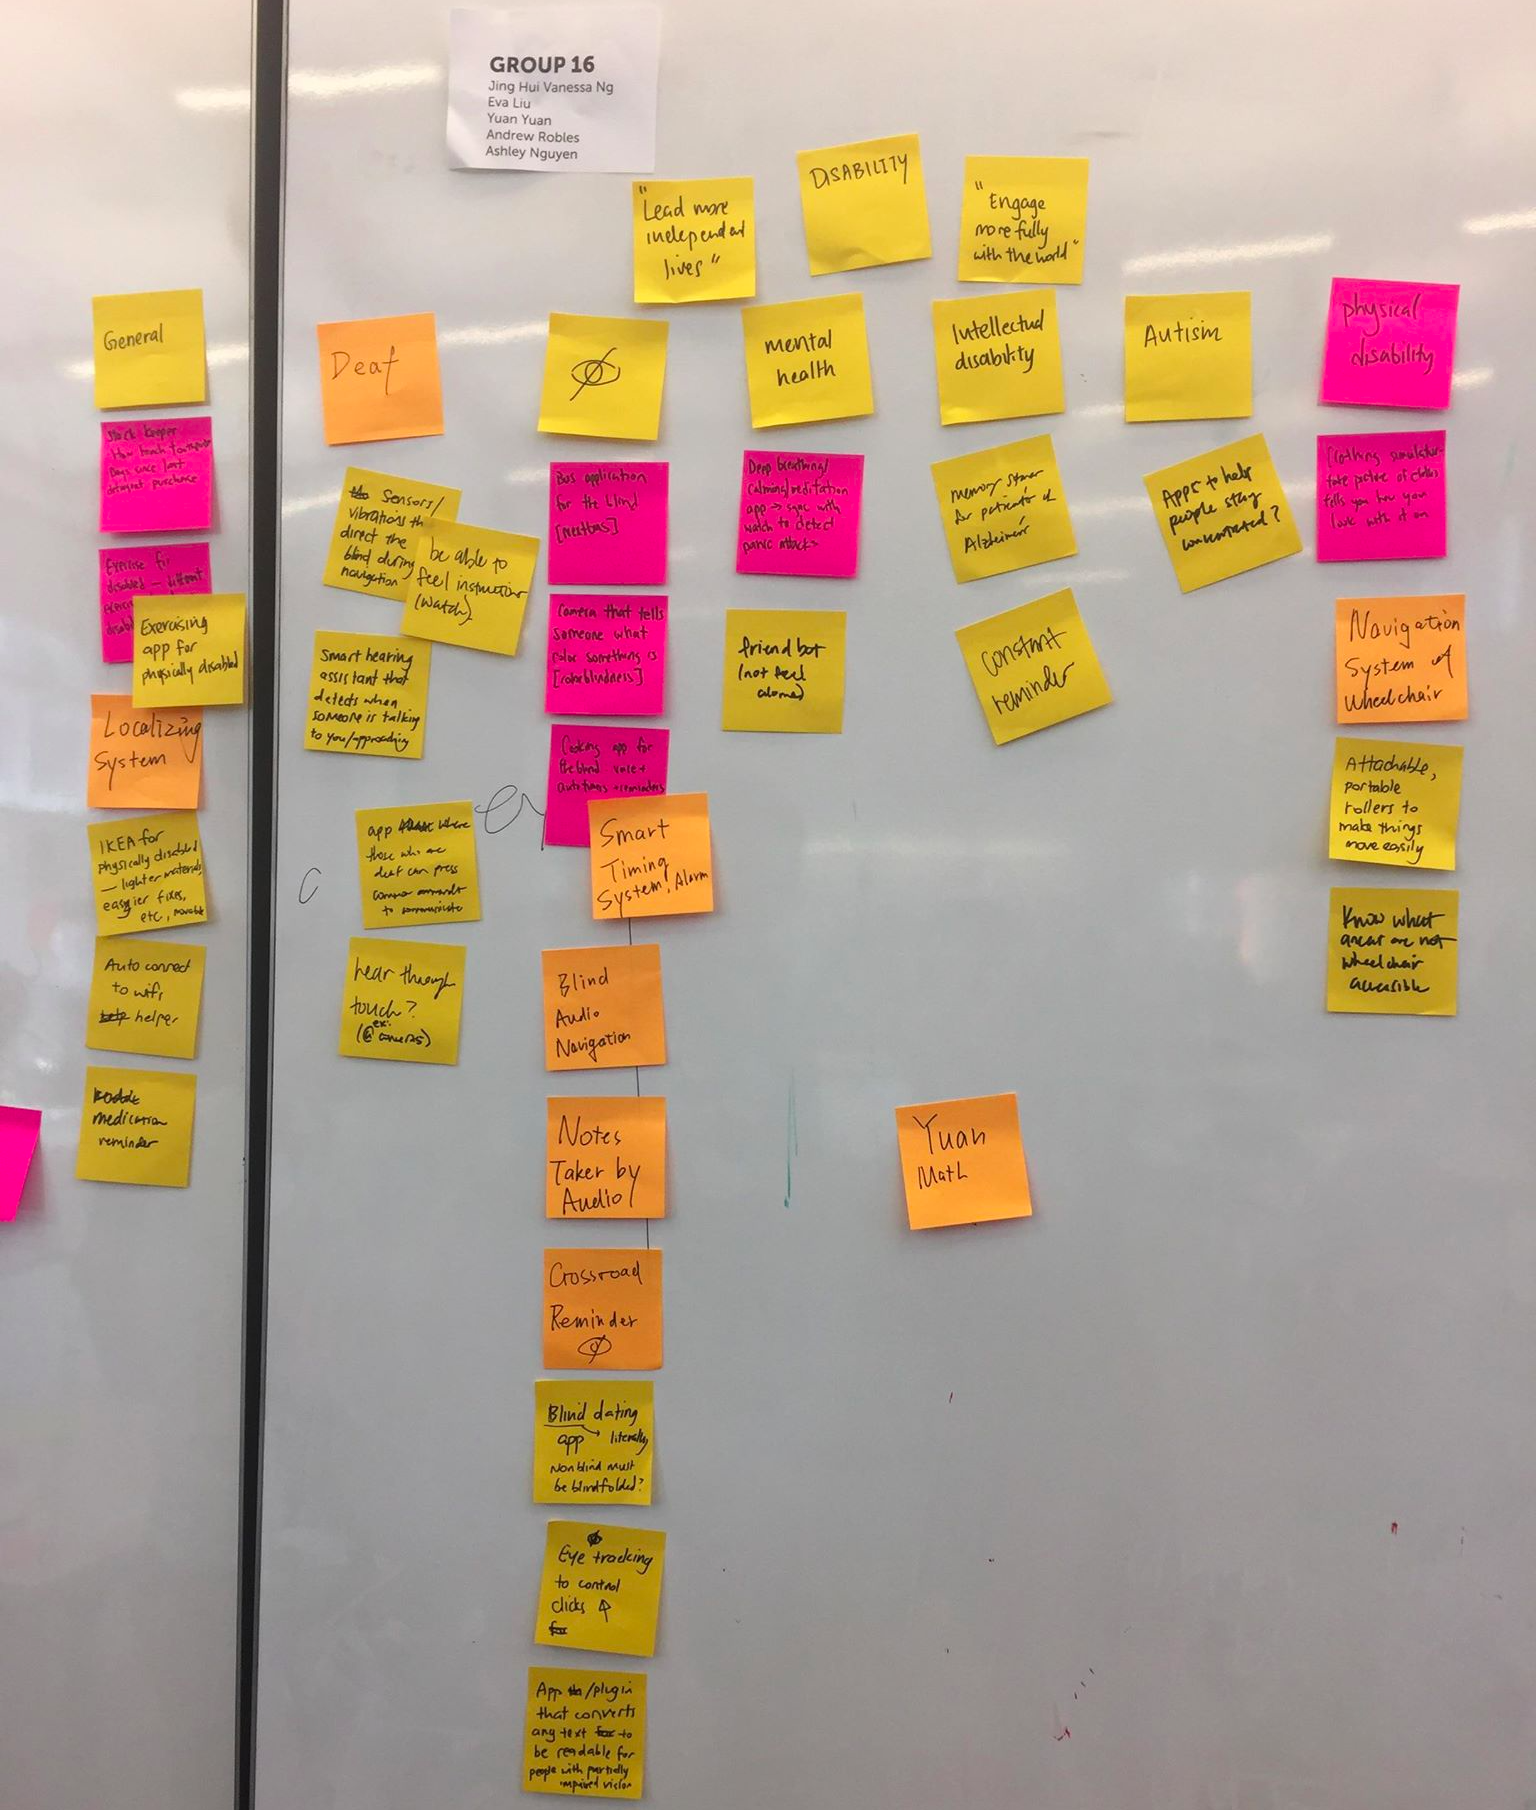 GROUP 16
Jing Hui Vanessa Ng
Eva Liu
Yuan Yuan
Andrew Robles
Ashley Nguyen
DISABILITY
"Lead more
independent
lives"
"Engage
more fully
with the world"
General
Stock keeper
How much toothpaste
Days since last
detergent purchase
Exercise for
disabled — different
Exercising
app for
physically disabled
Localizing
System
IKEA for
physically disabled
— lighter materials,
easier fixes,
etc., movable
Auto connect
to wifi
helper
medication
reminder
Deaf
Sensors/
vibrations th
direct the
blind during
navigation
be able to
feel instruction
(watch)
Smart hearing
assistant that
detects when
someone is talking
to you/approaching
app where
those who are
deaf can press
common commands
to communicate
hear through
touch?
(ex:
mental
health
Bus application
for the blind
[nextbus]
Camera that tells
someone what
color something is
[colorblindness]
Cooking app for
the blind voice +
auto timers + reminders
Smart
Timing
System, Alarm
Blind
Audio
Navigation
Notes
Taker by
Audio
Crossroad
Reminder
Blind dating
app → literally
Nonblind must
be blindfolded?
Eye tracking
to control
clicks
App /plugin
that converts
any text to
be readable for
people with partially
impaired vision
Deep breathing/
calming/meditation
app → sync with
watch to detect
panic attacks
friend bot
(not feel
alone)
Intellectual
disability
memory
for patients of
Alzheimer
constant
reminder
Autism
Apps to help
people stay
concentrated?
physical
disability
Clothing simulator-
take picture of clothes
tells you how you
look with it on
Navigation
System of
Wheelchair
Attachable,
portable
rollers to
make things
move easily
Know what
areas are not
wheelchair
accessible
Yuan
Math